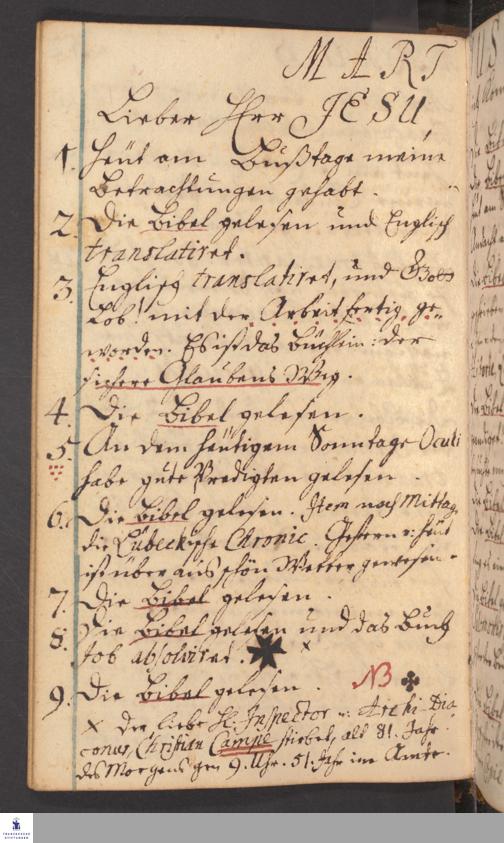 MART
Lieber Herr JESU,
1. Heut am Bußtage meine
Betrachtungen gehabt.
2. Die Bibel gelesen und Englisch
translatiret.
3. Englisch translatiret, und Gott
Lob! mit der Arbeit fertig ge-
worden. Es ist das Büchlein: der
sichere Glaubens Weg.
4. Die Bibel gelesen.
5. An dem heutigem Sonntage Oculi
habe gute Predigten gelesen.
6. Die Bibel gelesen. Item nach Mittag,
die Lübeckische Chronic. Gestern u: heut
ist überaus schön Wetter gewesen.
7. Die Bibel gelesen.
8. Die Bibel gelesen und das Buch
Job absolviret. x
9. Die Bibel gelesen. NB
x Der liebe H: Inspector u: Archi-Dia-
conus, Christian Campe stirbet, alt 81. Jahr
des Morgens gen 9. Uhr. 51. Jahr im Amte.
FRANCKESCHE
STIFTUNGEN